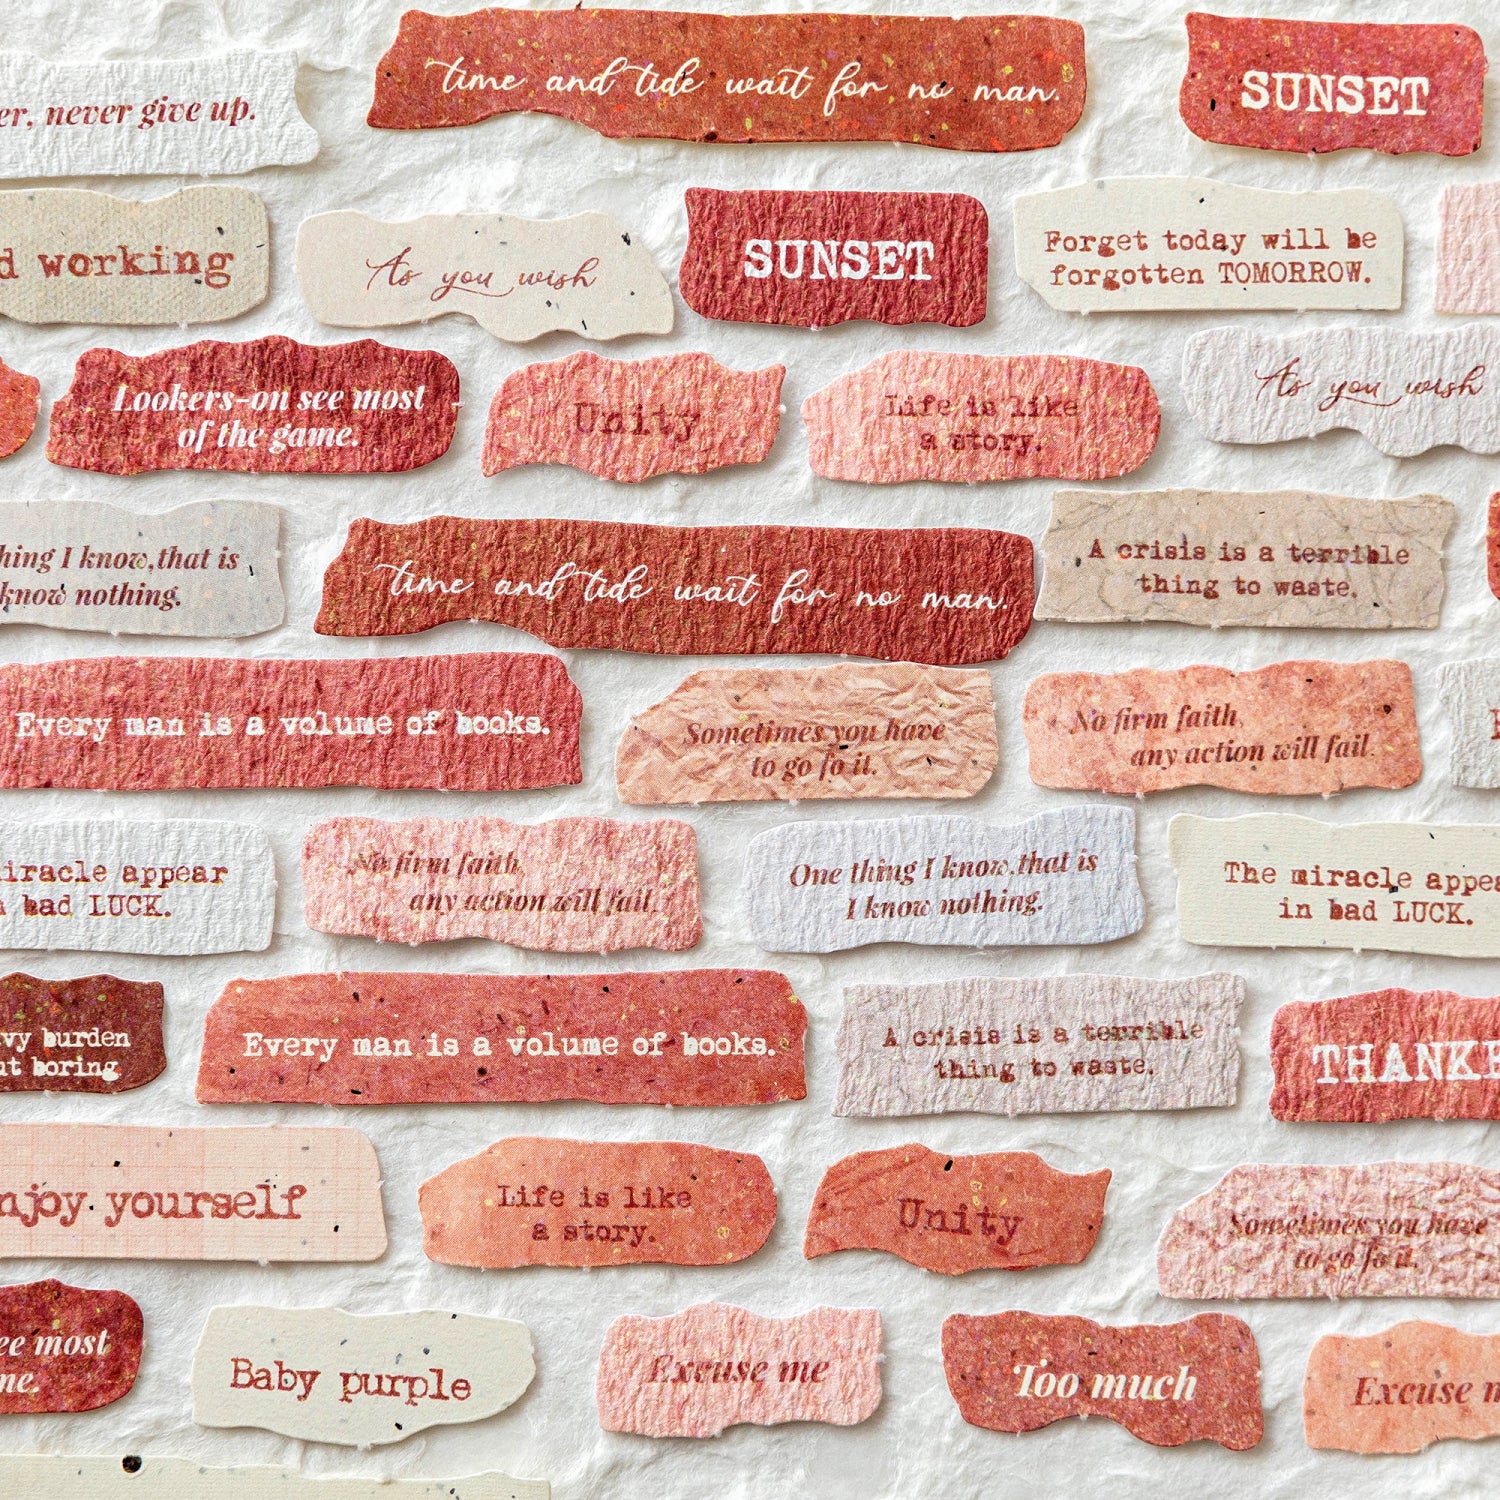 never give up.
time and tide wait for no man.
SUNSET
working
As you wish
SUNSET
Forget today will be
forgotten TOMORROW.
Lookers-on see most
of the game.
Unity
Life is like
a story.
As you wish
I know, that is
know nothing.
time and tide wait for no man.
A crisis is a terrible
thing to waste.
Every man is a volume of books.
Sometimes you have
to go fo it.
No firm faith,
any action will fail.
appear
bad LUCK.
No firm faith,
any action will fail.
One thing I know, that is
I know nothing.
The miracle appea
in bad LUCK.
burden
boring
Every man is a volume of books.
A crisis is a terrible
thing to waste.
THANKE
njoy yourself
Life is like
a story.
Unity
Sometimes you have
to go fo it.
most
Baby purple
Excuse me
Too much
Excuse